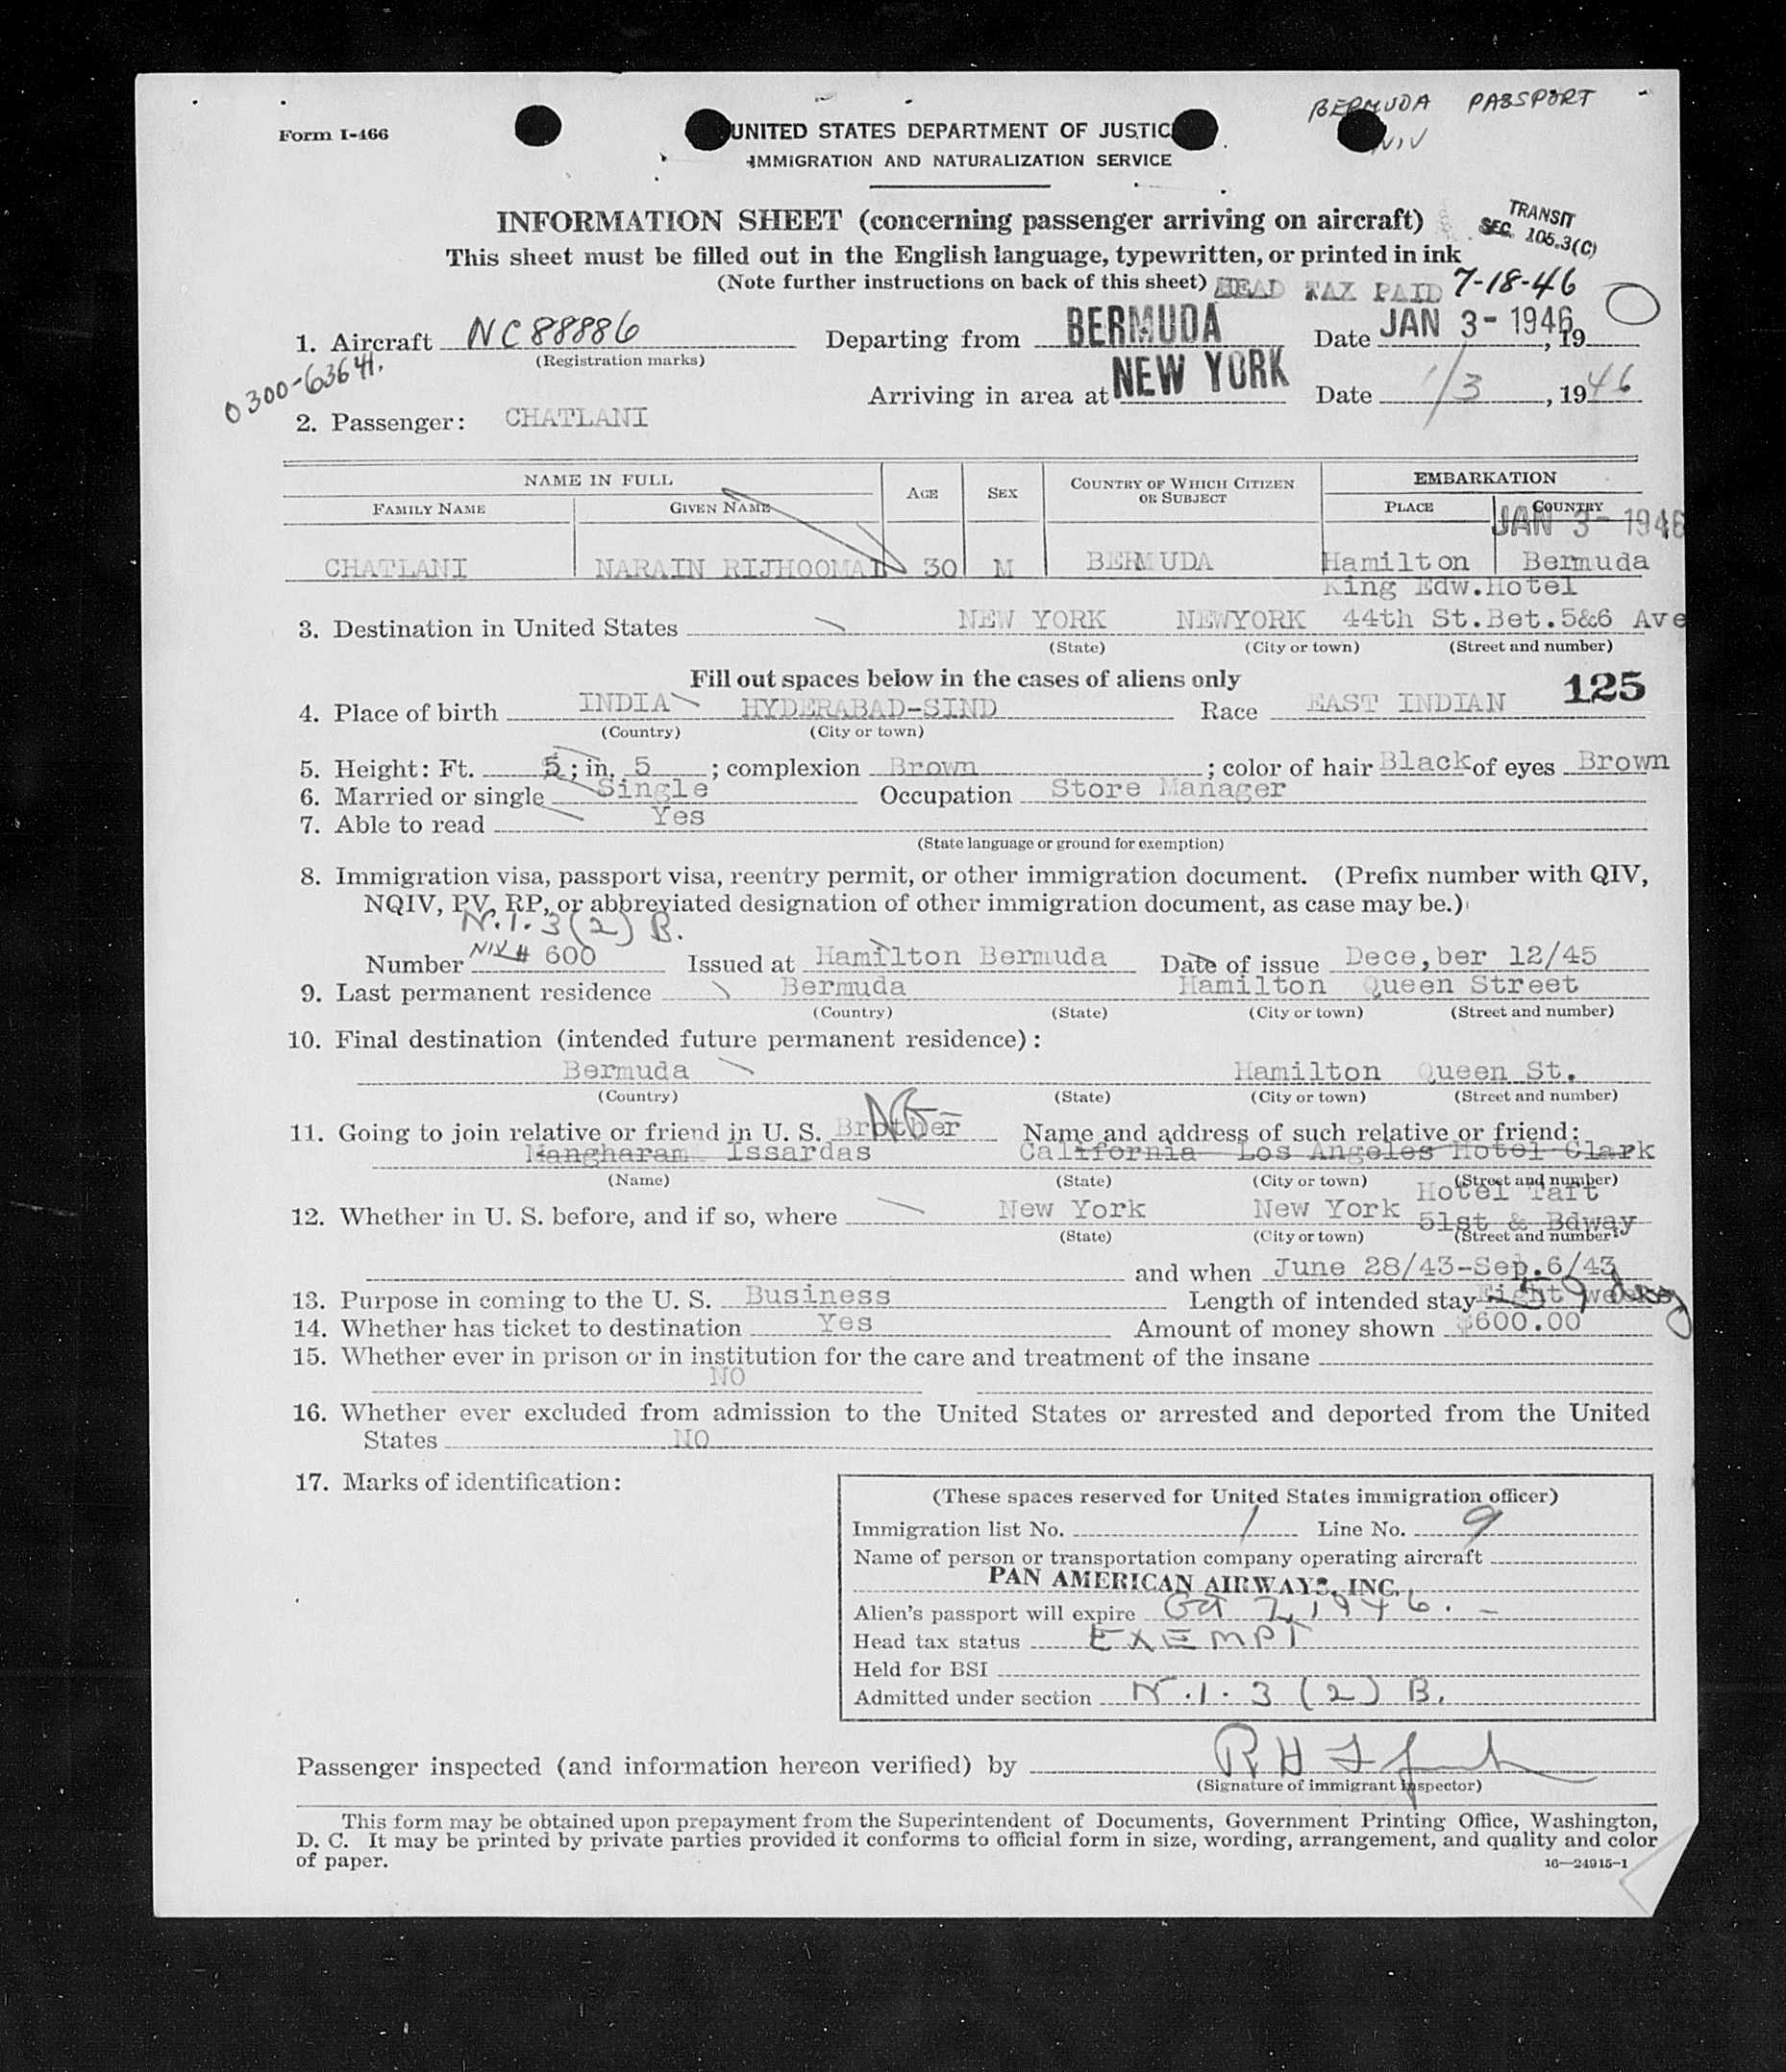 BERMUDA PASSPORT
Form I-466
UNITED STATES DEPARTMENT OF JUSTIC
NIV
IMMIGRATION AND NATURALIZATION SERVICE
INFORMATION SHEET (concerning passenger arriving on aircraft)
TRANSIT
SEC. 105.3(C)
This sheet must be filled out in the English language, typewritten, or printed in ink
(Note further instructions on back of this sheet) HEAD TAX PAID 7-18-46
1. Aircraft NC88886 Departing from BERMUDA Date JAN 3- 1946, 19
(Registration marks)
0300-63641.
Arriving in area at NEW YORK Date 1/3, 1946
2. Passenger: CHATLANI
NAME IN FULL AGE SEX COUNTRY OF WHICH CITIZEN OR SUBJECT EMBARKATION
FAMILY NAME GIVEN NAME PLACE COUNTRY
JAN 3- 1946
CHATLANI NARAIN RIJHOOMAL 30 M BERMUDA Hamilton Bermuda
King Edw.Hotel
3. Destination in United States NEW YORK NEWYORK 44th St.Bet.5&6 Ave
(State) (City or town) (Street and number)
Fill out spaces below in the cases of aliens only
125
4. Place of birth INDIA HYDERABAD-SIND Race EAST INDIAN
(Country) (City or town)
5. Height: Ft. 5; in. 5; complexion Brown; color of hair Black of eyes Brown
6. Married or single Single Occupation Store Manager
7. Able to read Yes
(State language or ground for exemption)
8. Immigration visa, passport visa, reentry permit, or other immigration document. (Prefix number with QIV,
NQIV, PV, RP, or abbreviated designation of other immigration document, as case may be.)
N.1.3(2) B.
Number NIV# 600 Issued at Hamilton Bermuda Date of issue Dece,ber 12/45
9. Last permanent residence Bermuda Hamilton Queen Street
(Country) (State) (City or town) (Street and number)
10. Final destination (intended future permanent residence):
Bermuda Hamilton Queen St.
(Country) (State) (City or town) (Street and number)
11. Going to join relative or friend in U. S. Brother Name and address of such relative or friend:
Mangharam Issardas California Los Angeles Hotel Clark
(Name) (State) (City or town) (Street and number)
Hotel Taft
12. Whether in U. S. before, and if so, where New York New York 51st & Bdway
(State) (City or town) (Street and number)
and when June 28/43-Sep.6/43
13. Purpose in coming to the U. S. Business Length of intended stay Eight weeks 59 days
14. Whether has ticket to destination Yes Amount of money shown $600.00
15. Whether ever in prison or in institution for the care and treatment of the insane
NO
16. Whether ever excluded from admission to the United States or arrested and deported from the United
States NO
17. Marks of identification:
(These spaces reserved for United States immigration officer)
Immigration list No. 1 Line No. 9
Name of person or transportation company operating aircraft
PAN AMERICAN AIRWAYS, INC.
Alien's passport will expire Oct 7, 1946.
Head tax status EXEMPT
Held for BSI
Admitted under section N.1.3(2) B.
Passenger inspected (and information hereon verified) by
(Signature of immigrant inspector)
This form may be obtained upon prepayment from the Superintendent of Documents, Government Printing Office, Washington,
D. C. It may be printed by private parties provided it conforms to official form in size, wording, arrangement, and quality and color
of paper.
16—24915-1